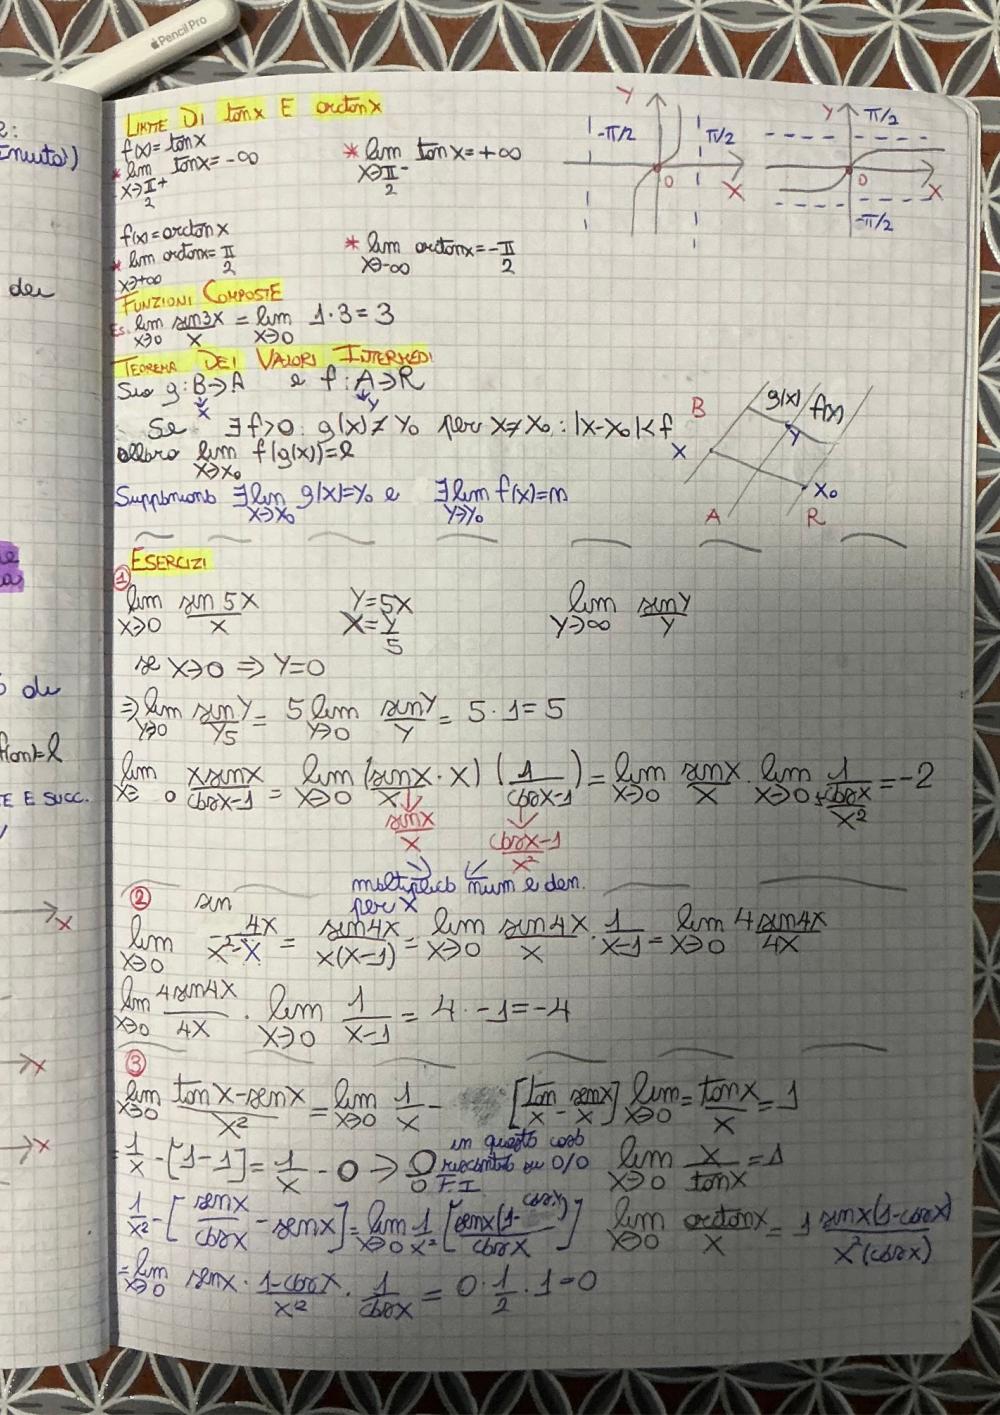 Pencil Pro
LIMITE DI tanx E arctanx
f(x)=tanx
* lim x→π/2⁺ tanx=-∞ * lim x→π/2⁻ tanx=+∞
Y -π/2 π/2 0 X
Y π/2 0 X -π/2
f(x)=arctanx
* lim x→+∞ arctanx=π/2 * lim x→-∞ arctanx=-π/2
FUNZIONI COMPOSTE
Es. lim x→0 sin3x/x = lim x→0 1·3=3
TEOREMA DEI VALORI INTERMEDI
Sia g:B→A e f:A→R
x y
Se ∃f>0: g(x)≠y₀ per x≠x₀: |x-x₀|<f
allora lim x→x₀ f(g(x))=l
Supponiamo ∃lim x→x₀ g(x)=y₀ e ∃lim y→y₀ f(x)=m
B g(x) f(x)
x y
x₀
A R
ESERCIZI
①
lim x→0 sin5x/x Y=5x lim y→∞ siny/y
X=Y/5
se x→0 ⇒ Y=0
⇒ lim y→0 siny/y5 = 5 lim y→0 siny/y = 5·1=5
lim x→0 xsinx/cosx-1 = lim x→0 (sinx/x·x)(1/cosx-1) = lim x→0 sinx/x · lim x→0 1/1+cosx/x² = -2
sinx/x cosx-1/x²
moltiplico num e den.
per x
② sin
lim x→0 4x/x²-x = sin4x/x(x-1) = lim x→0 sin4x/x · 1/x-1 = lim x→0 4 sin4x/4x
lim x→0 4sin4x/4x · lim x→0 1/x-1 = 4·-1=-4
③
lim x→0 tanx-senx/x² = lim x→0 1/x - [tan/x - senx/x] lim x→0 = tanx/x = 1
= 1/x -[1-1]= 1/x -0 → 0/0 in questo caso
su 0/0
F.I. lim x→0 x/tanx = 1
1/x² -[senx/cosx - senx] = lim x→0 1/x² [senx(1-cosx)/cosx] lim x→0 arctanx/x = 1 sinx(1-cosx)/x²(cosx)
= lim x→0 senx · 1-cosx/x² · 1/cosx = 0·1/2·1=0